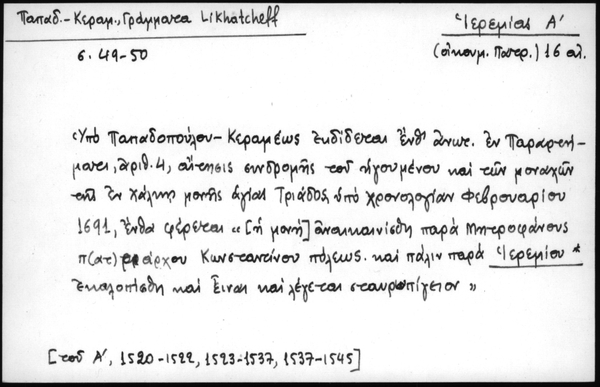 Παπαδ.-Κεραμ., Γράμματα Likhatcheff
Ἱερεμίας Α'
σ. 49-50
(οἰκουμ. Πατρ.) 16 αἰ.
Ὑπὸ Παπαδοπούλου-Κεραμέως ἐκδίδεται ἔνθ' ἀνωτ. ἐν Παραρτή-
ματι, ἀριθ. 4, αἴτησις συνδρομῆς τοῦ ἡγουμένου καὶ τῶν μοναχῶν
τῆς ἐν Χάλκῃ μονῆς ἁγίας Τριάδος ὑπὸ χρονολογίαν Φεβρουαρίου
1691, ἔνθα φέρεται «[ἡ μονὴ] ἀνακαινίσθη παρὰ Μητροφάνους
π(ατ)ριάρχου Κωνσταντίνου πόλεως. καὶ πάλιν παρὰ Ἱερεμίου *
ἐκαλοπίσθη καὶ εἶναι καὶ λέγεται σταυροπίγειον»
[τοῦ Α', 1520-1522, 1523-1537, 1537-1545]